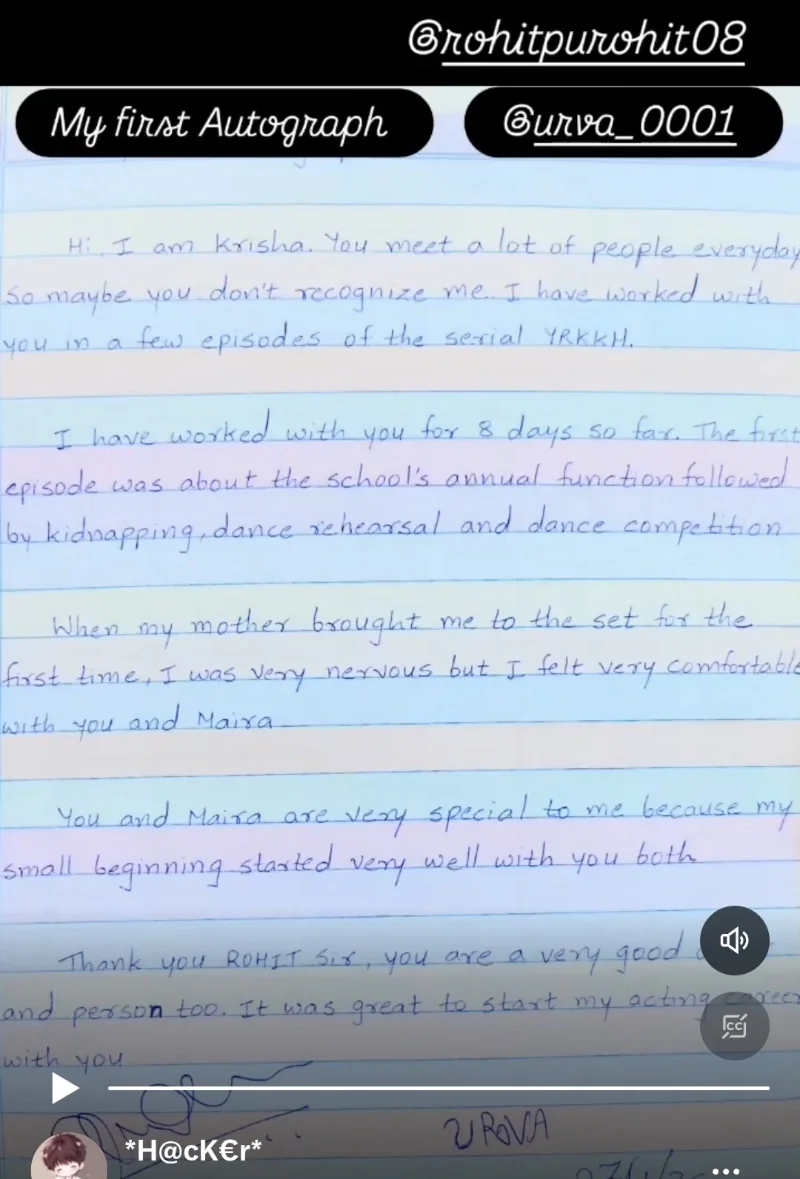 @rohitpurohit08
My first Autograph @urva_0001
Hi, I am Krisha. You meet a lot of people everyday
So maybe you don't recognize me. I have worked with
you in a few episodes of the serial YRKKH.
I have worked with you for 8 days so far. The first
episode was about the school's annual function followed
by kidnapping, dance rehearsal and dance competition
When my mother brought me to the set for the
first time, I was very nervous but I felt very comfortable
with you and Maira
You and Maira are very special to me because my
small beginning started very well with you both
Thank you ROHIT Sir, you are a very good
and person too. It was great to start my acting career
with you
URVA
*H@cK€r*